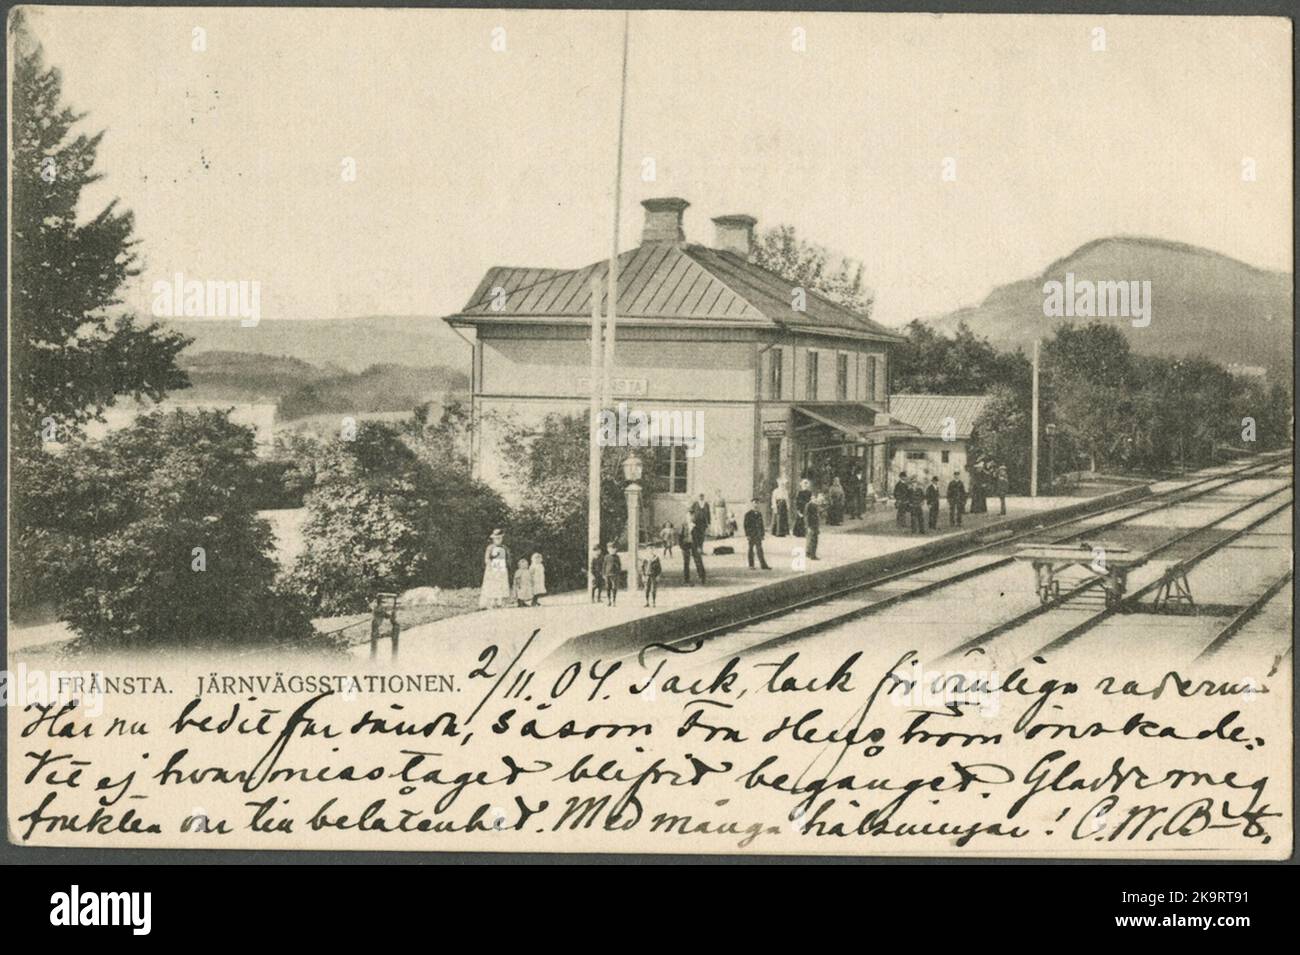 FRÄNSTA
FRÄNSTA. JÄRNVÄGSSTATIONEN.
2/11. 04. Tack, tack för vänliga raderna!
Har nu bedit far sända, såsom Fru Hengström önskade.
Vet ej hvar misstaget blifvit begånget. Gladde mig
frukten var till belåtenhet. Med många hälsningar! C. W. B-t.
alamy
Image ID: 2K9RT91
www.alamy.com